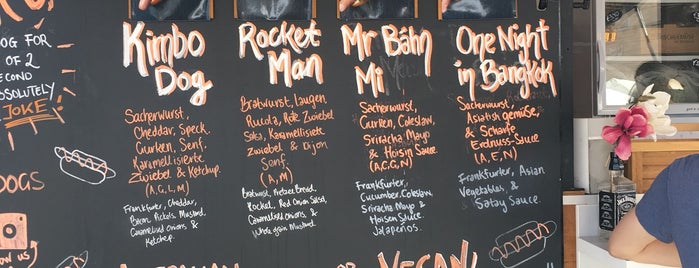 OG FOR
OF 2
SECOND
BSOLUTELY
JOKE
DOGS
US
Kimbo
Dog
Sacherwurst,
Cheddar, Speck,
Gurken, Senf,
Karamellisierte
Zwiebel & Ketchup.
(A,G,L,M)
Frankfurter, Cheddar,
Bacon, Pickels, Mustard,
Caramelised Onions, &
Ketchup.
Rocket
Man
Bratwurst, Laugen
Rucola, Rote Zwiebel
Salsa, Karamellisiete
Zwiebel & Dijon
Senf.
(A,M)
Bratwurst, Pretzel Bread,
Rocket, Red Onion Salsa,
Caramelised Onions, &
Whole grain Mustard.
Mr Báhn
Mi
Sacherwurst,
Gurken, Coleslaw,
Sriracha Mayo
& Hoisin Sauce.
(A,C,G,N)
Frankfurter,
Cucumber, Coleslaw,
Sriracha Mayo &
Hoisen Sauce.
Jalapeños.
One Night
in Bangkok
Sacherwurst,
Asiatish gemüße,
& Scharfe
Erdnuss-Sauce
(A,E,N)
Frankfurter, Asian
Vegetables, &
Satay Sauce.
VEGAN!